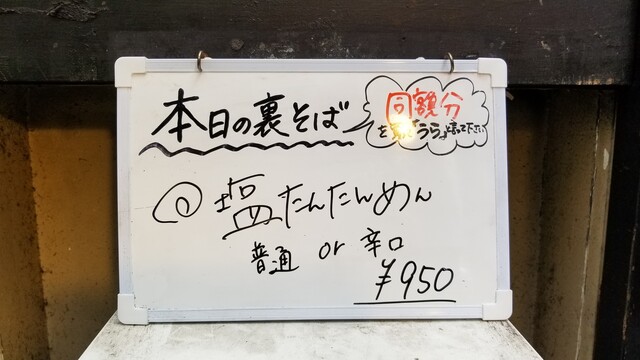 本日の裏そば
同額分
を買て「うら」と言って下さい
塩たんたんめん
普通 or 辛口
¥950